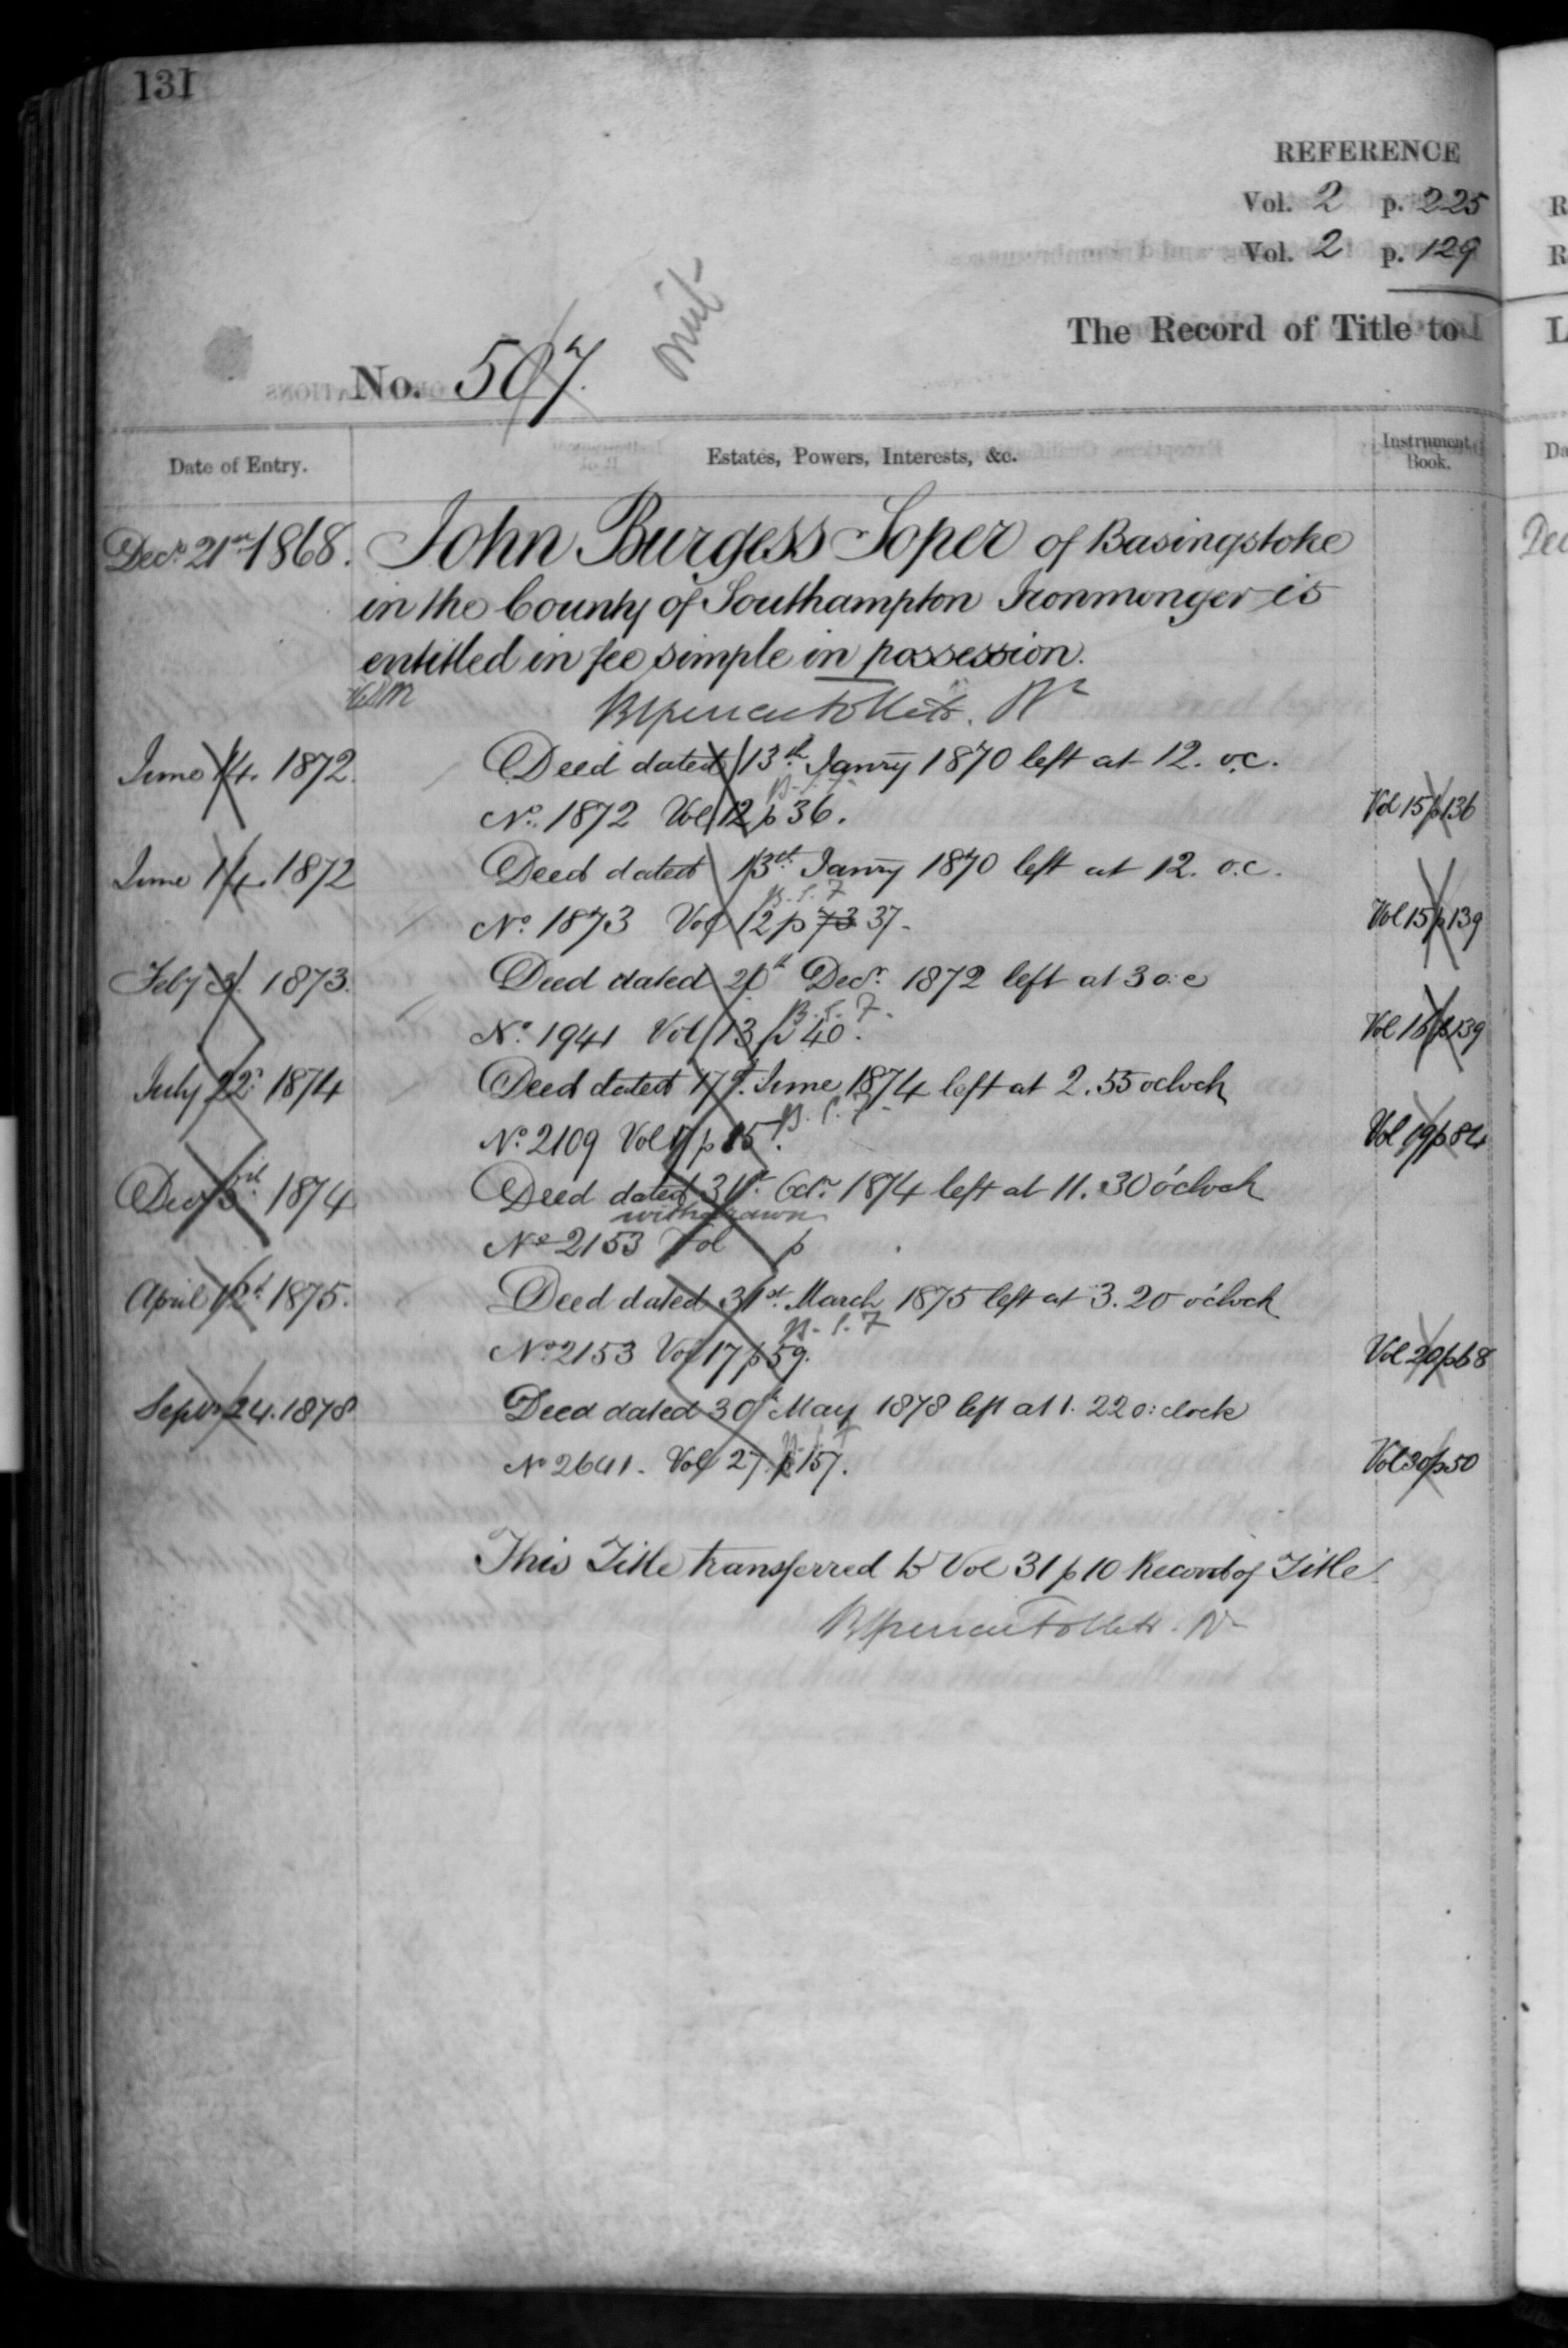 131
REFERENCE
Vol. 2 p. 225
Vol. 2 p. 129
The Record of Title to
No. 507.
Date of Entry. Estates, Powers, Interests, &c. Instrument Book.
Decr. 21st 1868. John Burgess Soper of Basingstoke
in the County of Southampton Ironmonger is
entitled in fee simple in possession.
June 14. 1872. Deed dated 13th Janry 1870 left at 12. o.c.
No. 1872 Vol 12 p 36. Vol 15 p 136
June 14. 1872 Deed dated 13th Janry 1870 left at 12. o.c.
No. 1873 Vol 12 p 73 37. Vol 15 p 139
Feby 3. 1873. Deed dated 20th Decr. 1872 left at 3 o.c
No. 1941 Vol 13 p 40. Vol 16 p 139
July 22d 1874 Deed dated 17th June 1874 left at 2.55 oclock
No. 2109 Vol 17 p 15. Vol 19 p 84
Decr 3rd 1874 Deed dated 31st Octr. 1874 left at 11.30 o'clock
withdrawn
No 2153 Vol p
April 12th 1875. Deed dated 31st March 1875 left at 3.20 o'clock
B. S. F
No 2153 Vol 17 p 59. Vol 20 p 68
Septr 24. 1878 Deed dated 30th May 1878 left at 1.22 o:clock
No 2641. Vol 27 p 157. Vol 30 p 50
This Title transferred to Vol 31 p 10 Record of Title